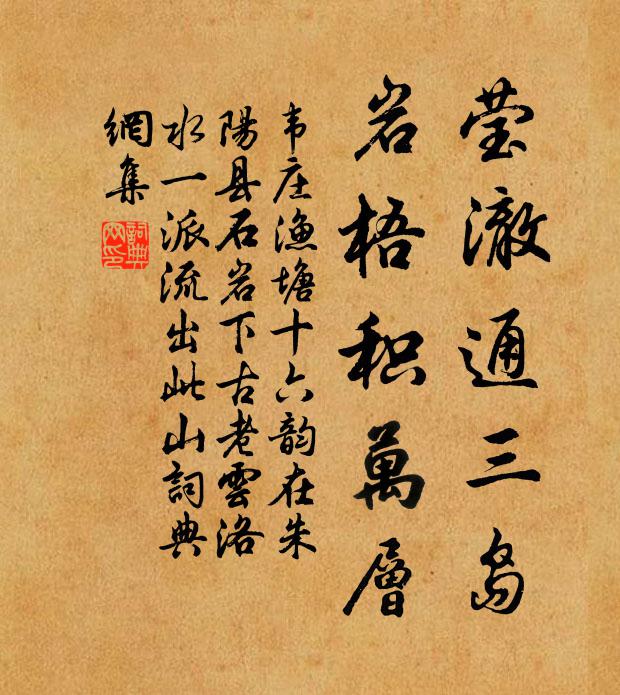 莹澈通三岛
岩梧积萬層
韦庄渔塘十六韵在朱
陽县石岩下古老雲洛
水一派流出此山詞典
網集
詞典
网印